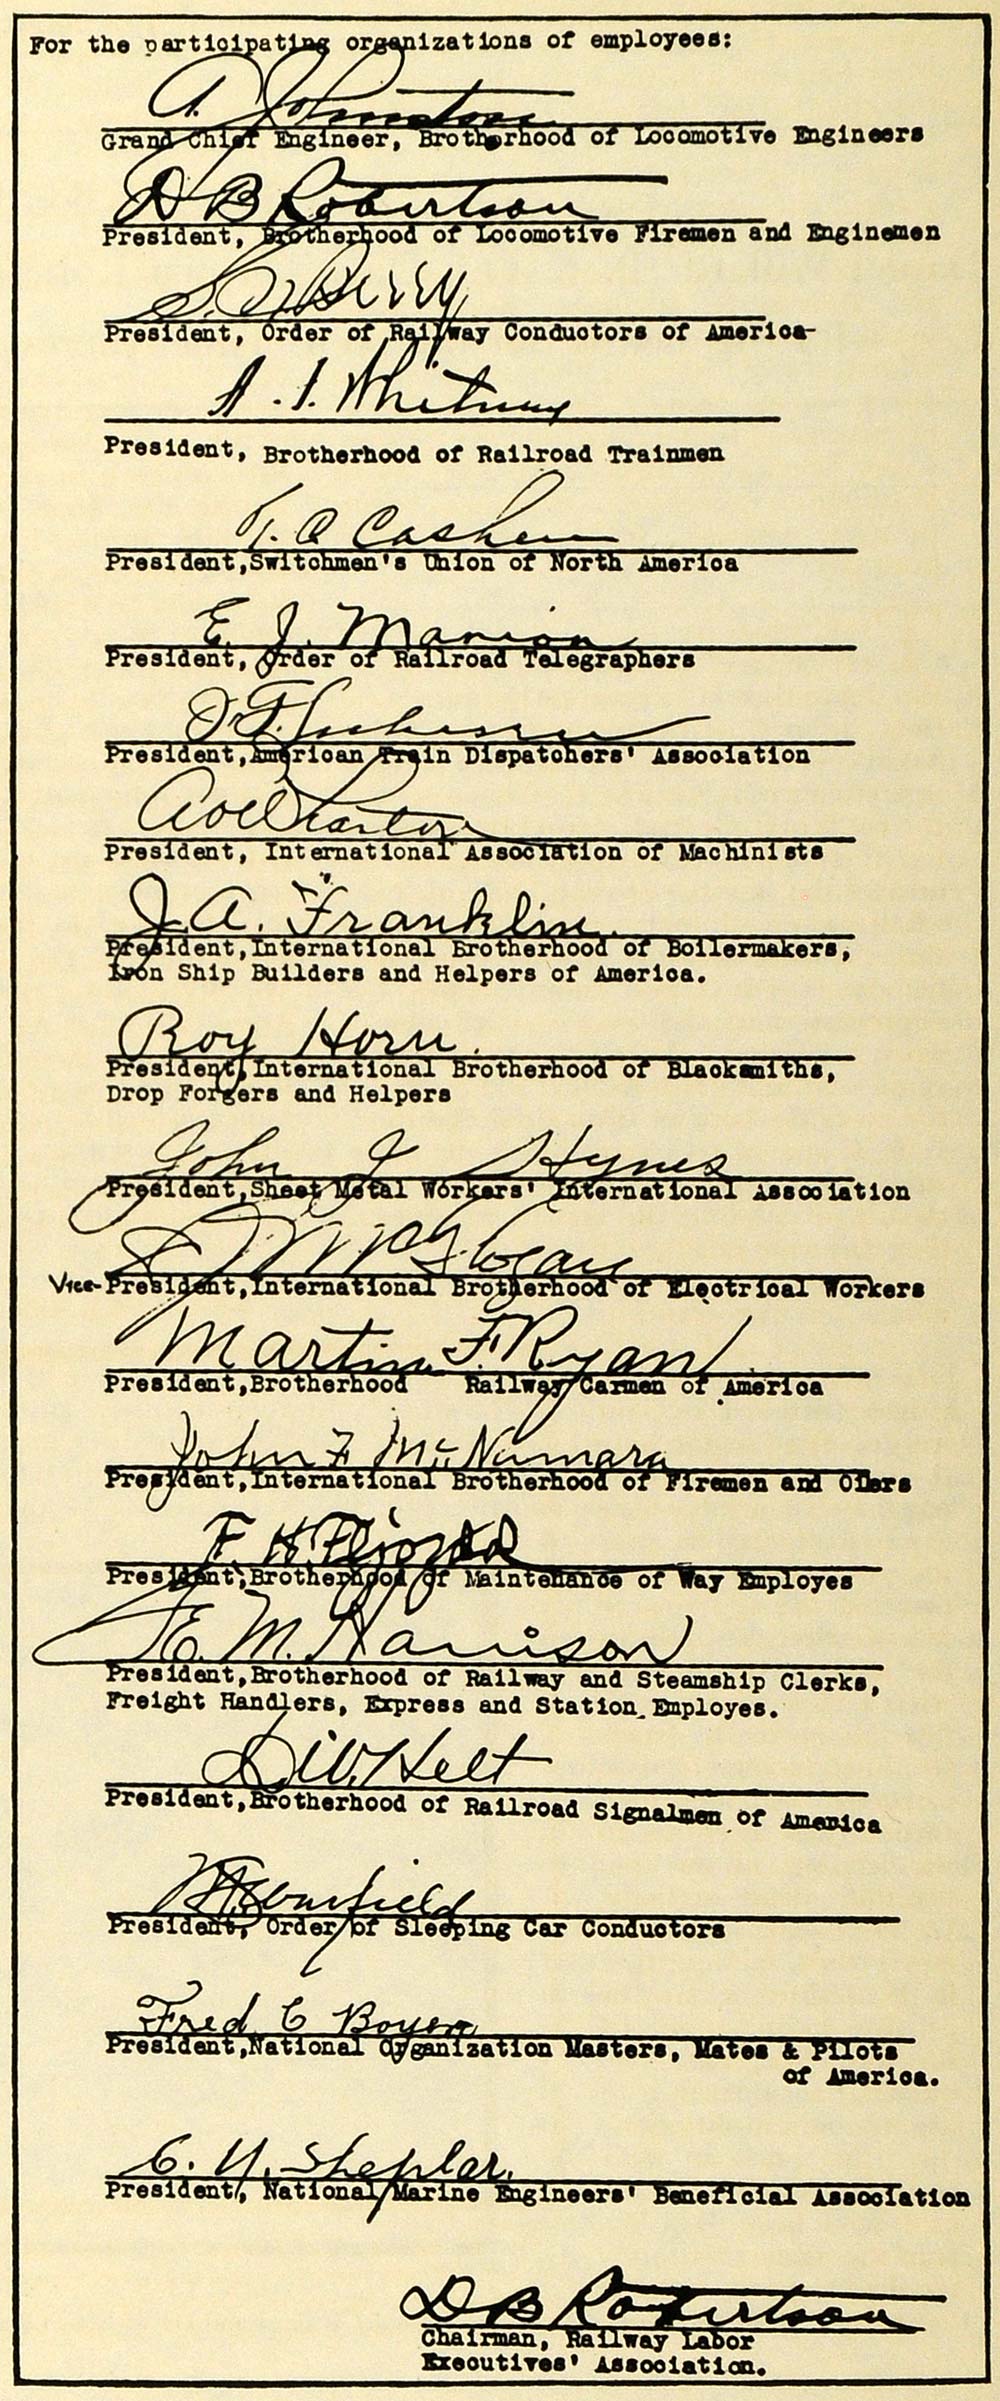 For the participating organizations of employees:
A. Johnston
Grand Chief Engineer, Brotherhood of Locomotive Engineers
D B Robertson
President, Brotherhood of Locomotive Firemen and Enginemen
Berry
President, Order of Railway Conductors of America
A. F. Whitney
President, Brotherhood of Railroad Trainmen
T. C Cashen
President, Switchmen's Union of North America
E. J. Manion
President, Order of Railroad Telegraphers
President, American Train Dispatchers' Association
President, International Association of Machinists
J. A. Franklin
President, International Brotherhood of Boilermakers,
Iron Ship Builders and Helpers of America.
Roy Horn
President, International Brotherhood of Blacksmiths,
Drop Forgers and Helpers
John J Hynes
President, Sheet Metal Workers' International Association
Vice-President, International Brotherhood of Electrical Workers
Martin F. Ryan
President, Brotherhood Railway Carmen of America
John F McNamara
President, International Brotherhood of Firemen and Oilers
F. H. Fljozdal
President, Brotherhood of Maintenance of Way Employes
Harrison
President, Brotherhood of Railway and Steamship Clerks,
Freight Handlers, Express and Station Employes.
D. W. Helt
President, Brotherhood of Railroad Signalmen of America
President, Order of Sleeping Car Conductors
Fred C Boyer
President, National Organization Masters, Mates & Pilots
of America.
C. M. Sheplar.
President, National Marine Engineers' Beneficial Association
D B Robertson
Chairman, Railway Labor
Executives' Association.